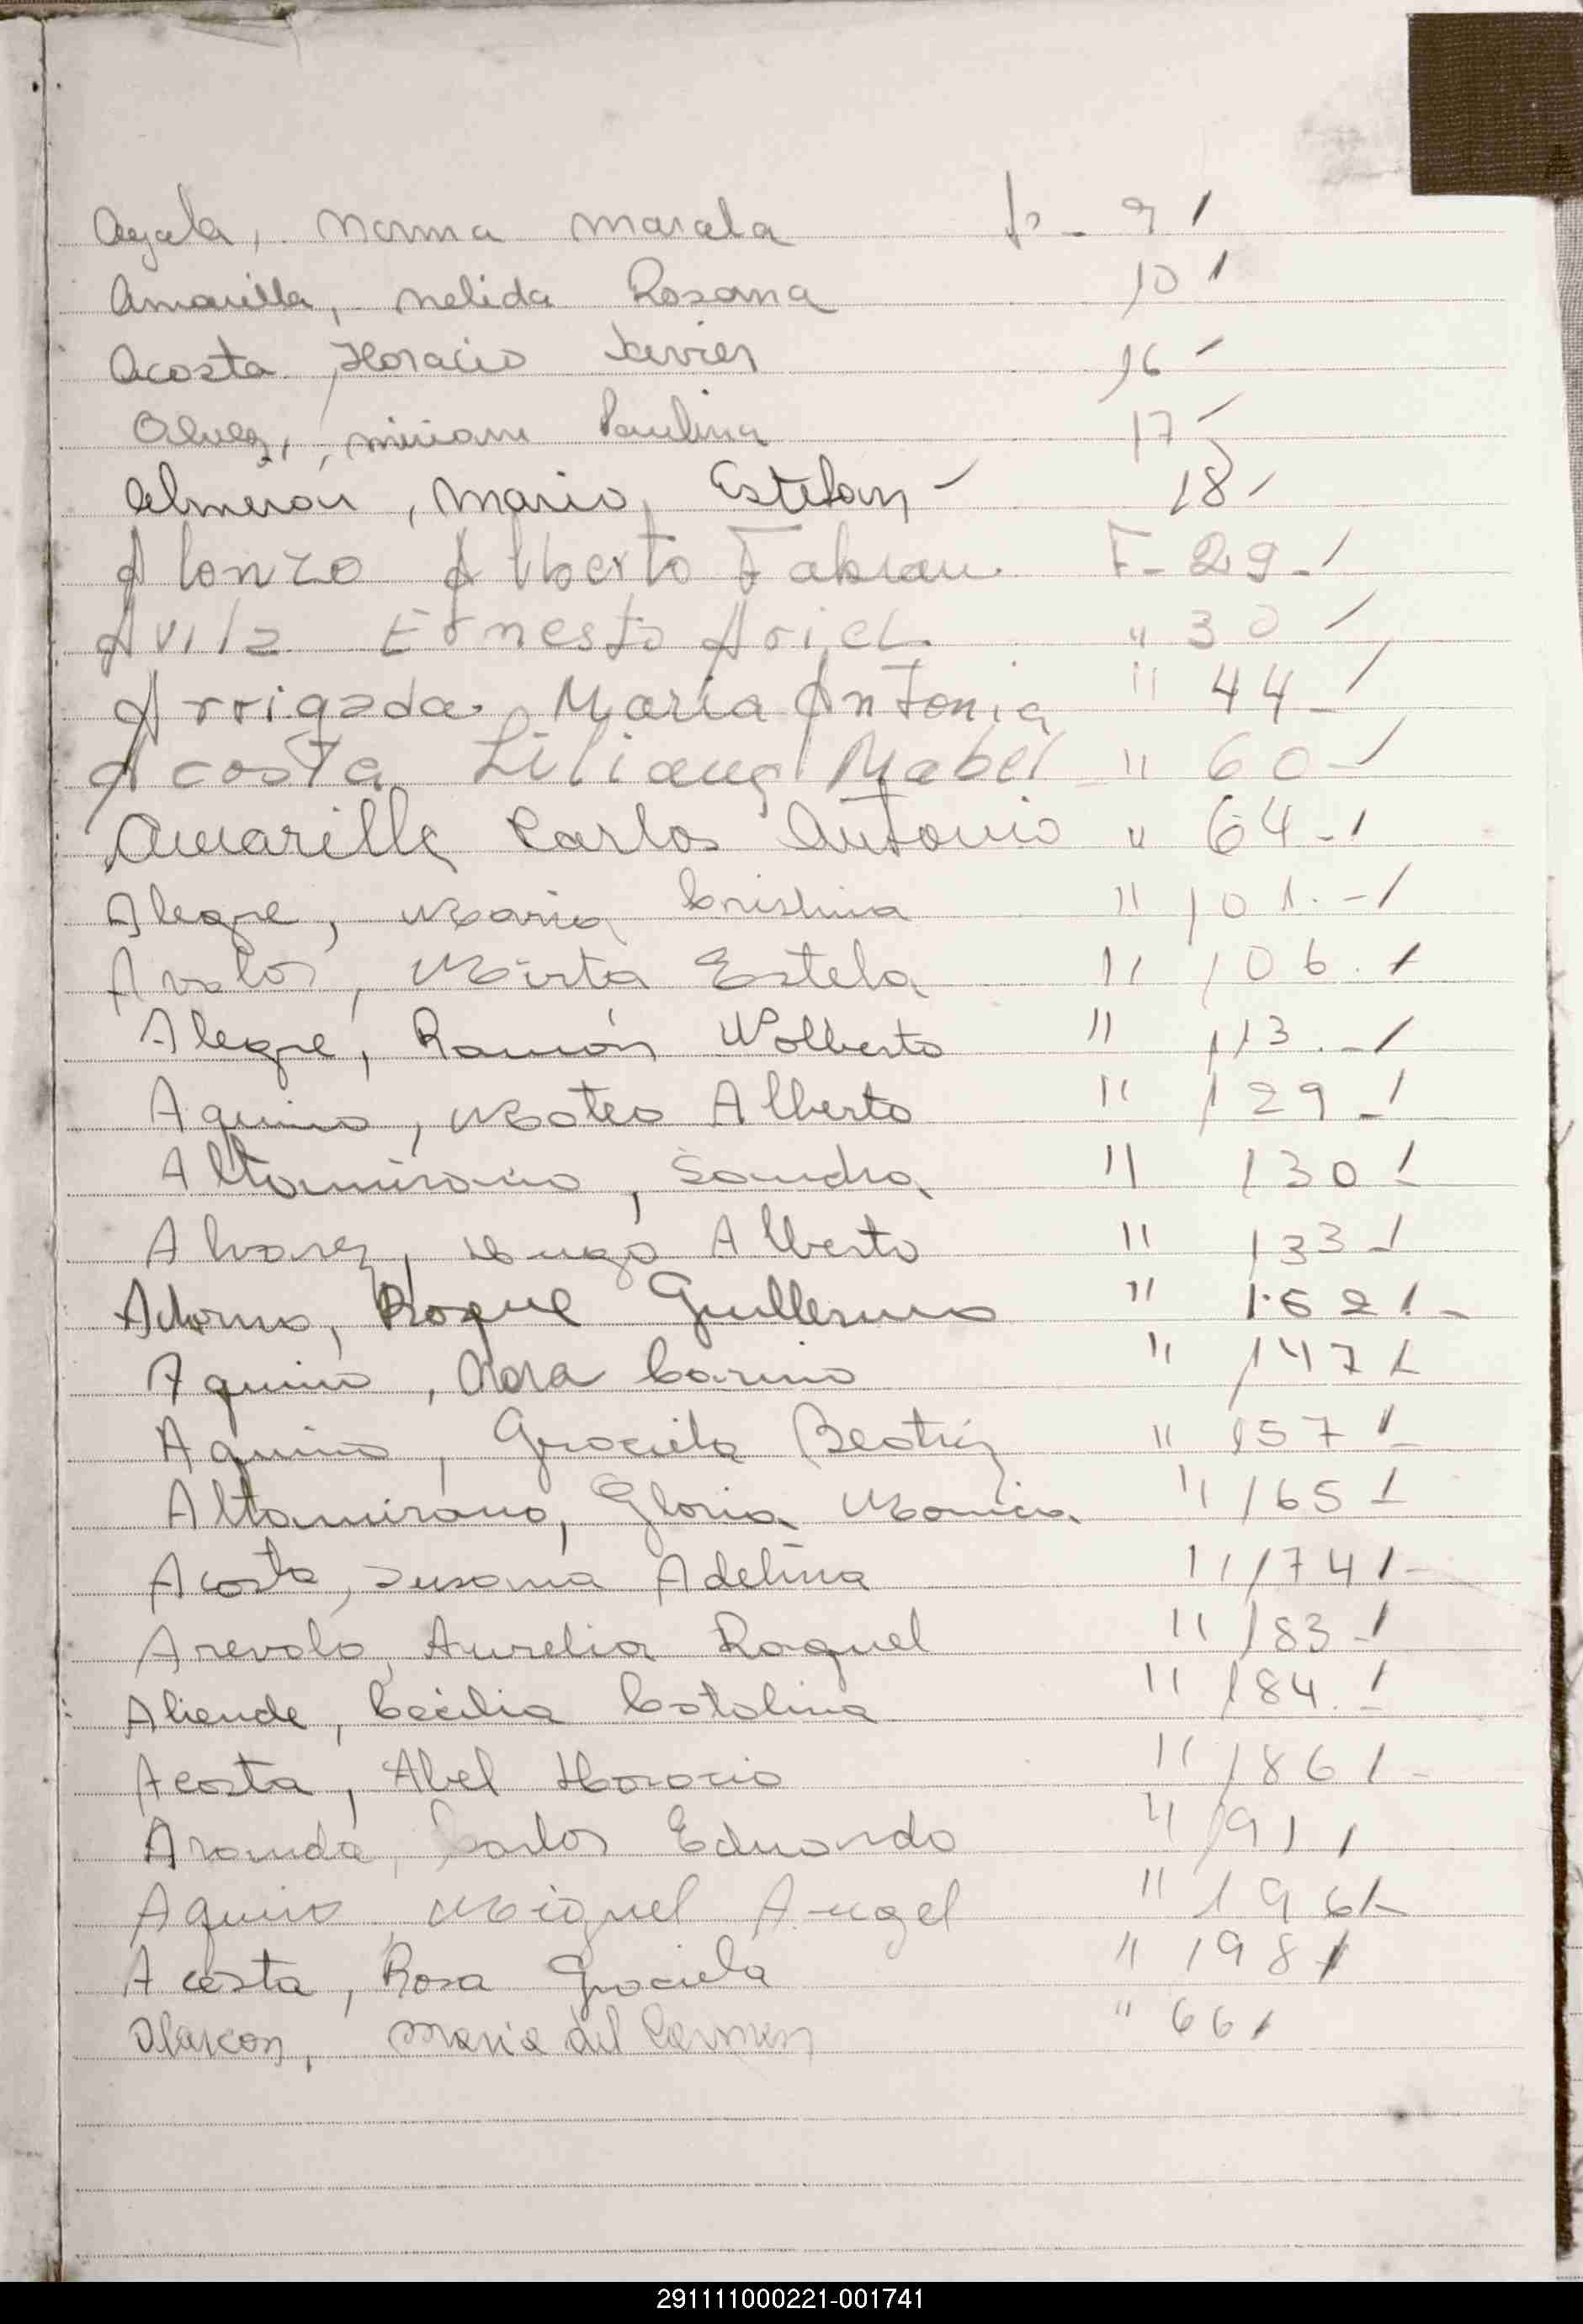 Ayala, Norma Marcela fo - 9 /
Amarilla, Nelida Rosana 10 /
Acosta, Horacio Javier 16 -
Alvez, Miriam Paulina 17 -
Almerón, Mario, Esteban - 18 /
Alonzo Alberto Fabian F - 29 - /
Avila Ernesto Ariel " 30 /
Arrigada Maria Antonia " 44 - /
Acosta Liliana Mabel " 60 - /
Amarilla Carlos Antonio " 64 - /
Alegre, Maria Cristina " 101. - /
Avalos, Mirta Estela " 106. /
Alegre, Ramón Wolberto " 113. - /
Aquino, Mateo Alberto " 129 - /
Altamirano, Sandra " 130 /
Alvarez, Hugo Alberto " 133 - /
Adorno, Roque Guillermo " 1.62 / -
Aquino, Carino " 147 /
Aquino, Graciela Beatriz " 157 /
Altamirano, Gloria Monica " 165 /
Acosta, Susana Adelina " 174 / -
Arevalo, Aurelia Raquel " 183 - /
Aliende, Cecilia Catalina " 184. /
Acosta, Abel Horacio " 186 / -
Aranda, Carlos Eduardo " 191 /
Aquino, Miguel Angel " 196 / -
Acosta, Rosa Graciela " 198 /
Alarcon, Maria del Carmen " 66 /
291111000221-001741